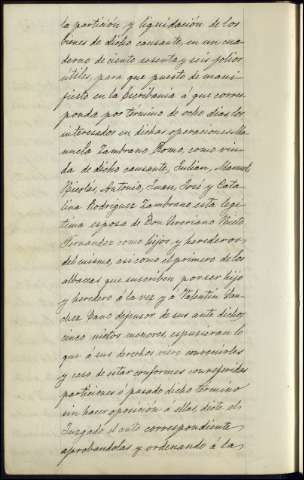 la particion, y liquidacion de los
bienes de dicho causante, en un cua-
derno de ciento sesenta y seis folios
utiles, para que puesto de mani-
fiesto en la Escribania á que corres-
ponda por término de ocho dias los
interesados en dichas operaciones Ma-
nuela Zambrano Romo, como viu-
da de dicho causante, Julian, Manuel,
Nicolas, Antonio, Juan, José y Cata-
lina Rodriguez Zambrano esta legi-
tima esposa de Don Nieto
Hernandez como hijos y herederos
del mismo, asi como el primero de los
albaceas que suscriben por ser hijo
y heredero á la vez y á Valentin San-
chez Cano defensor de sus ante dichos
cinco nietos menores, espusieran lo
que á sus derechos vieren convenirles
y caso de estar conformes con referidas
particiones ó pasado dicho término
sin hacer oposicion á ellas, dicte el
Juzgado el auto correspondiente
aprobandolas y ordenando á la